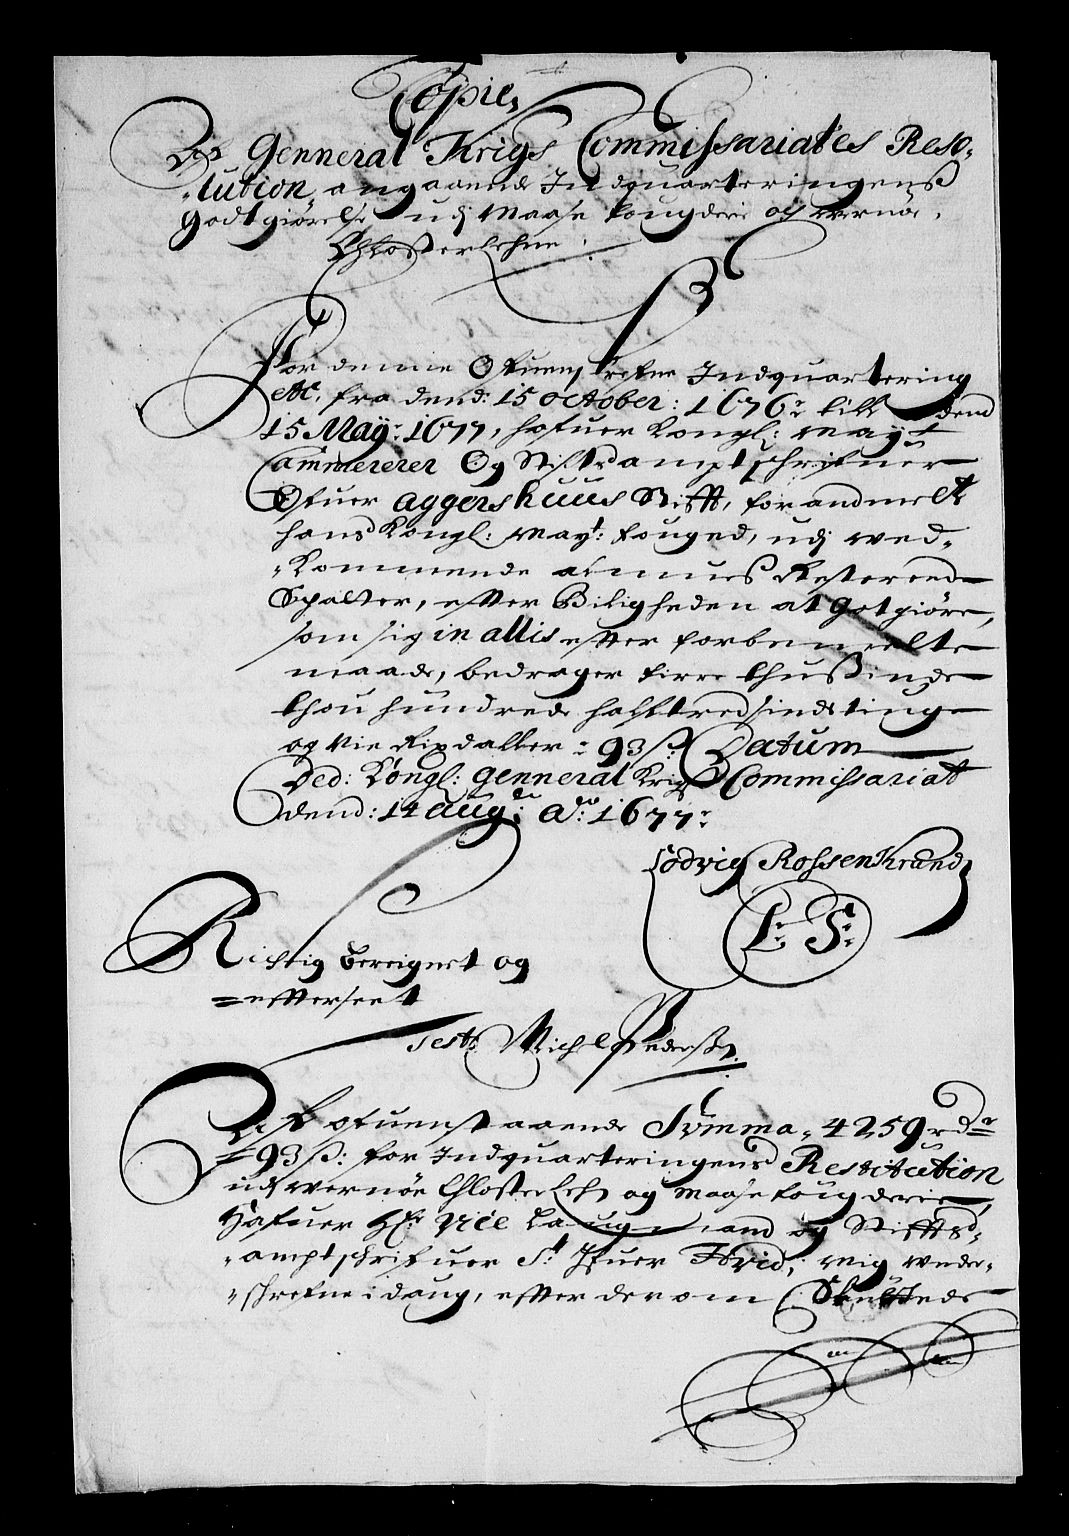 Copie,
Af Genneral Krigs Commissariates Reso-
-lution, angaaende Indquarteringens
godtgiørelse udj Maase fougderie og Wernøe,
Chlosterlehne:
For denne Ofuenskrefne Indquartering
etc. fra dend: 15 October: 1676: till dend
15 May: 1677, hafuer Kongl: May:ts
Cammererer Og Stiftsamptschrifuer
Ofuer Aggershuus Stift, for andmelte
hans Kongl: May:t fouged, udj ved-
-kommende almues Resterende
Schatter, efter Biligheden at Gotgiøre,
som sig in allis efter forbemelte
maade, bedrager firre thussinde
thou hundrede halftredsindstiuge
og Nie Rixdaller: 93 s: Datum
Ded: Kongl: Genneral Krigs Commissariat
dend: 14 Aug: Ao: 1677:
Lodvig Rossenkrandz
L. S.
Richtig bereignet og
=efterseet
Test: Michel Pederss:
Af ofuenstaaende Summa, 4259 rd:
=93 s: for Indquarteringens Restitution
udj Wernøe Chlosterlehn og Maase fougderie,
Hafuer Hr: Vice Laugmand og Stiftsd
-amptschrifuer Sr: Ifuer Hvid, mig under-
-schrefne i daug, efter derom